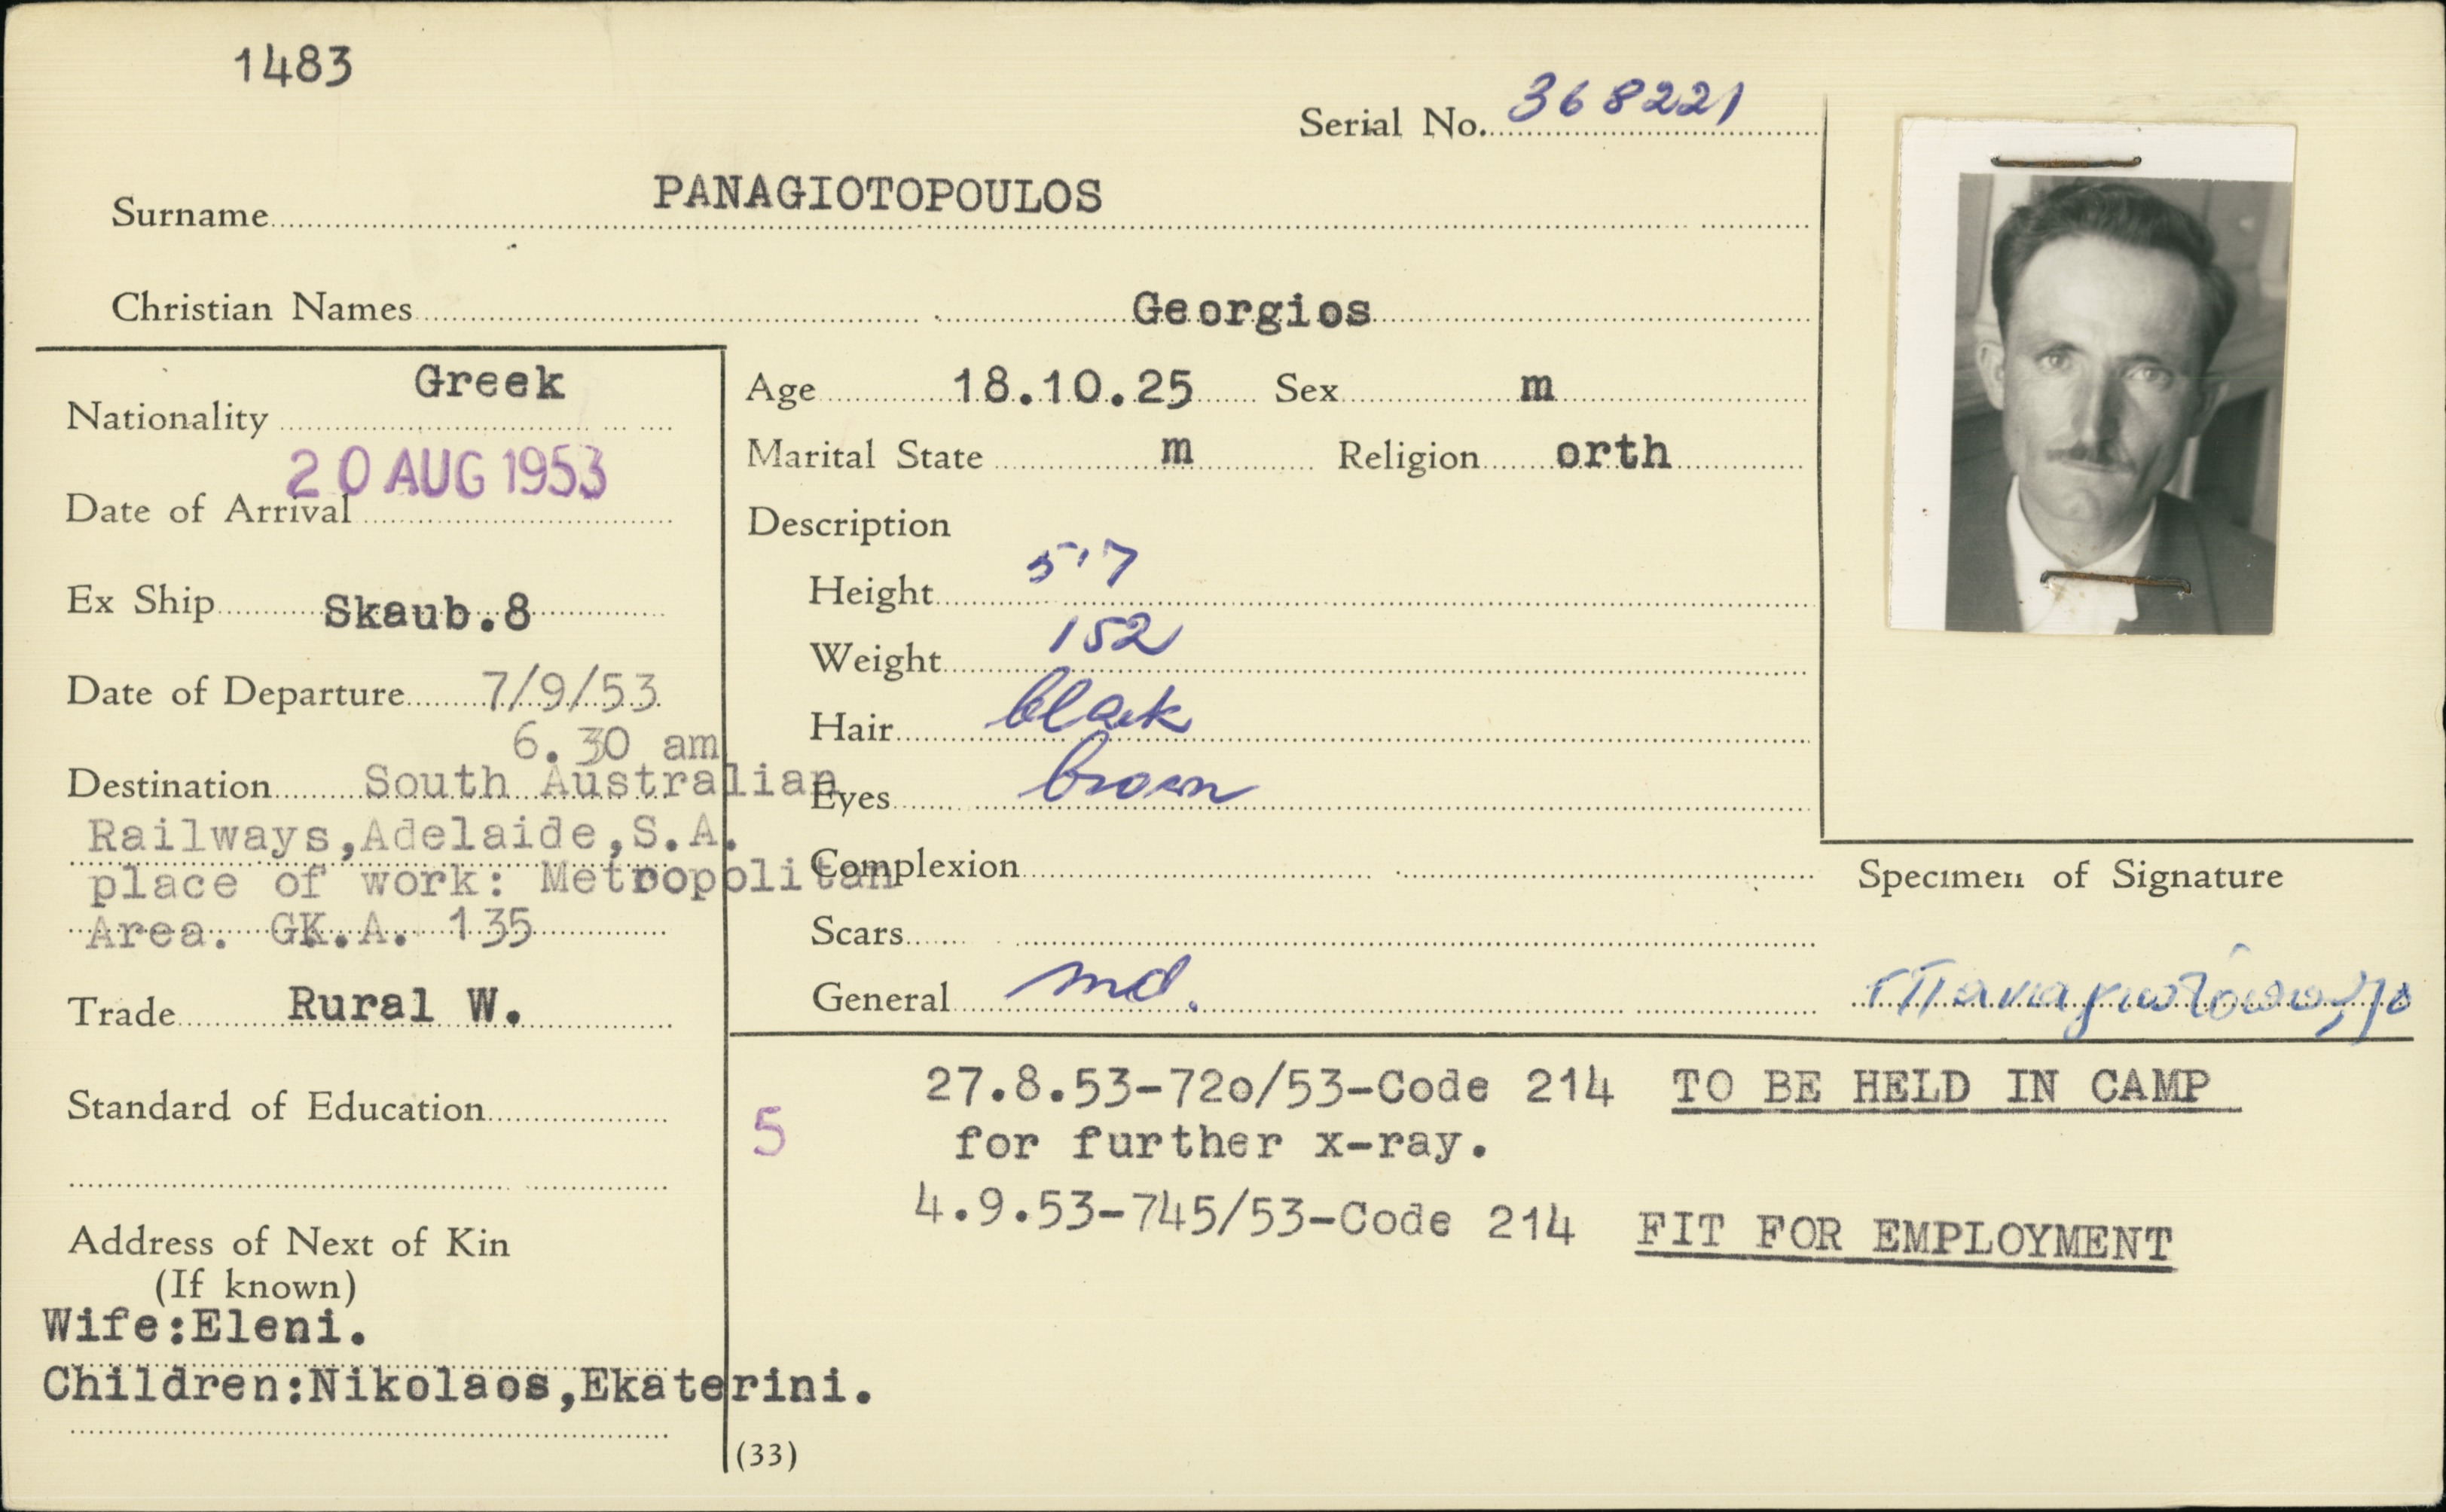 1483
Serial No. 368221
Surname PANAGIOTOPOULOS
Christian Names Georgios
Nationality Greek
Date of Arrival 20 AUG 1953
Ex Ship Skaub.8
Date of Departure 7/9/53
6.30 am
Destination South Australian
Railways,Adelaide,S.A.
place of work: Metropolitan
Area. GK.A. 135
Trade Rural W.
Standard of Education
Address of Next of Kin
(If known)
Wife:Eleni.
Children:Nikolaos,Ekaterini.
Age 18.10.25 Sex m
Marital State m Religion orth
Description
Height 5'7
Weight 152
Hair black
Eyes brown
Complexion
Scars
General md.
Specimen of Signature
27.8.53-720/53-Code 214 TO BE HELD IN CAMP
5
for further x-ray.
4.9.53-745/53-Code 214 FIT FOR EMPLOYMENT
(33)